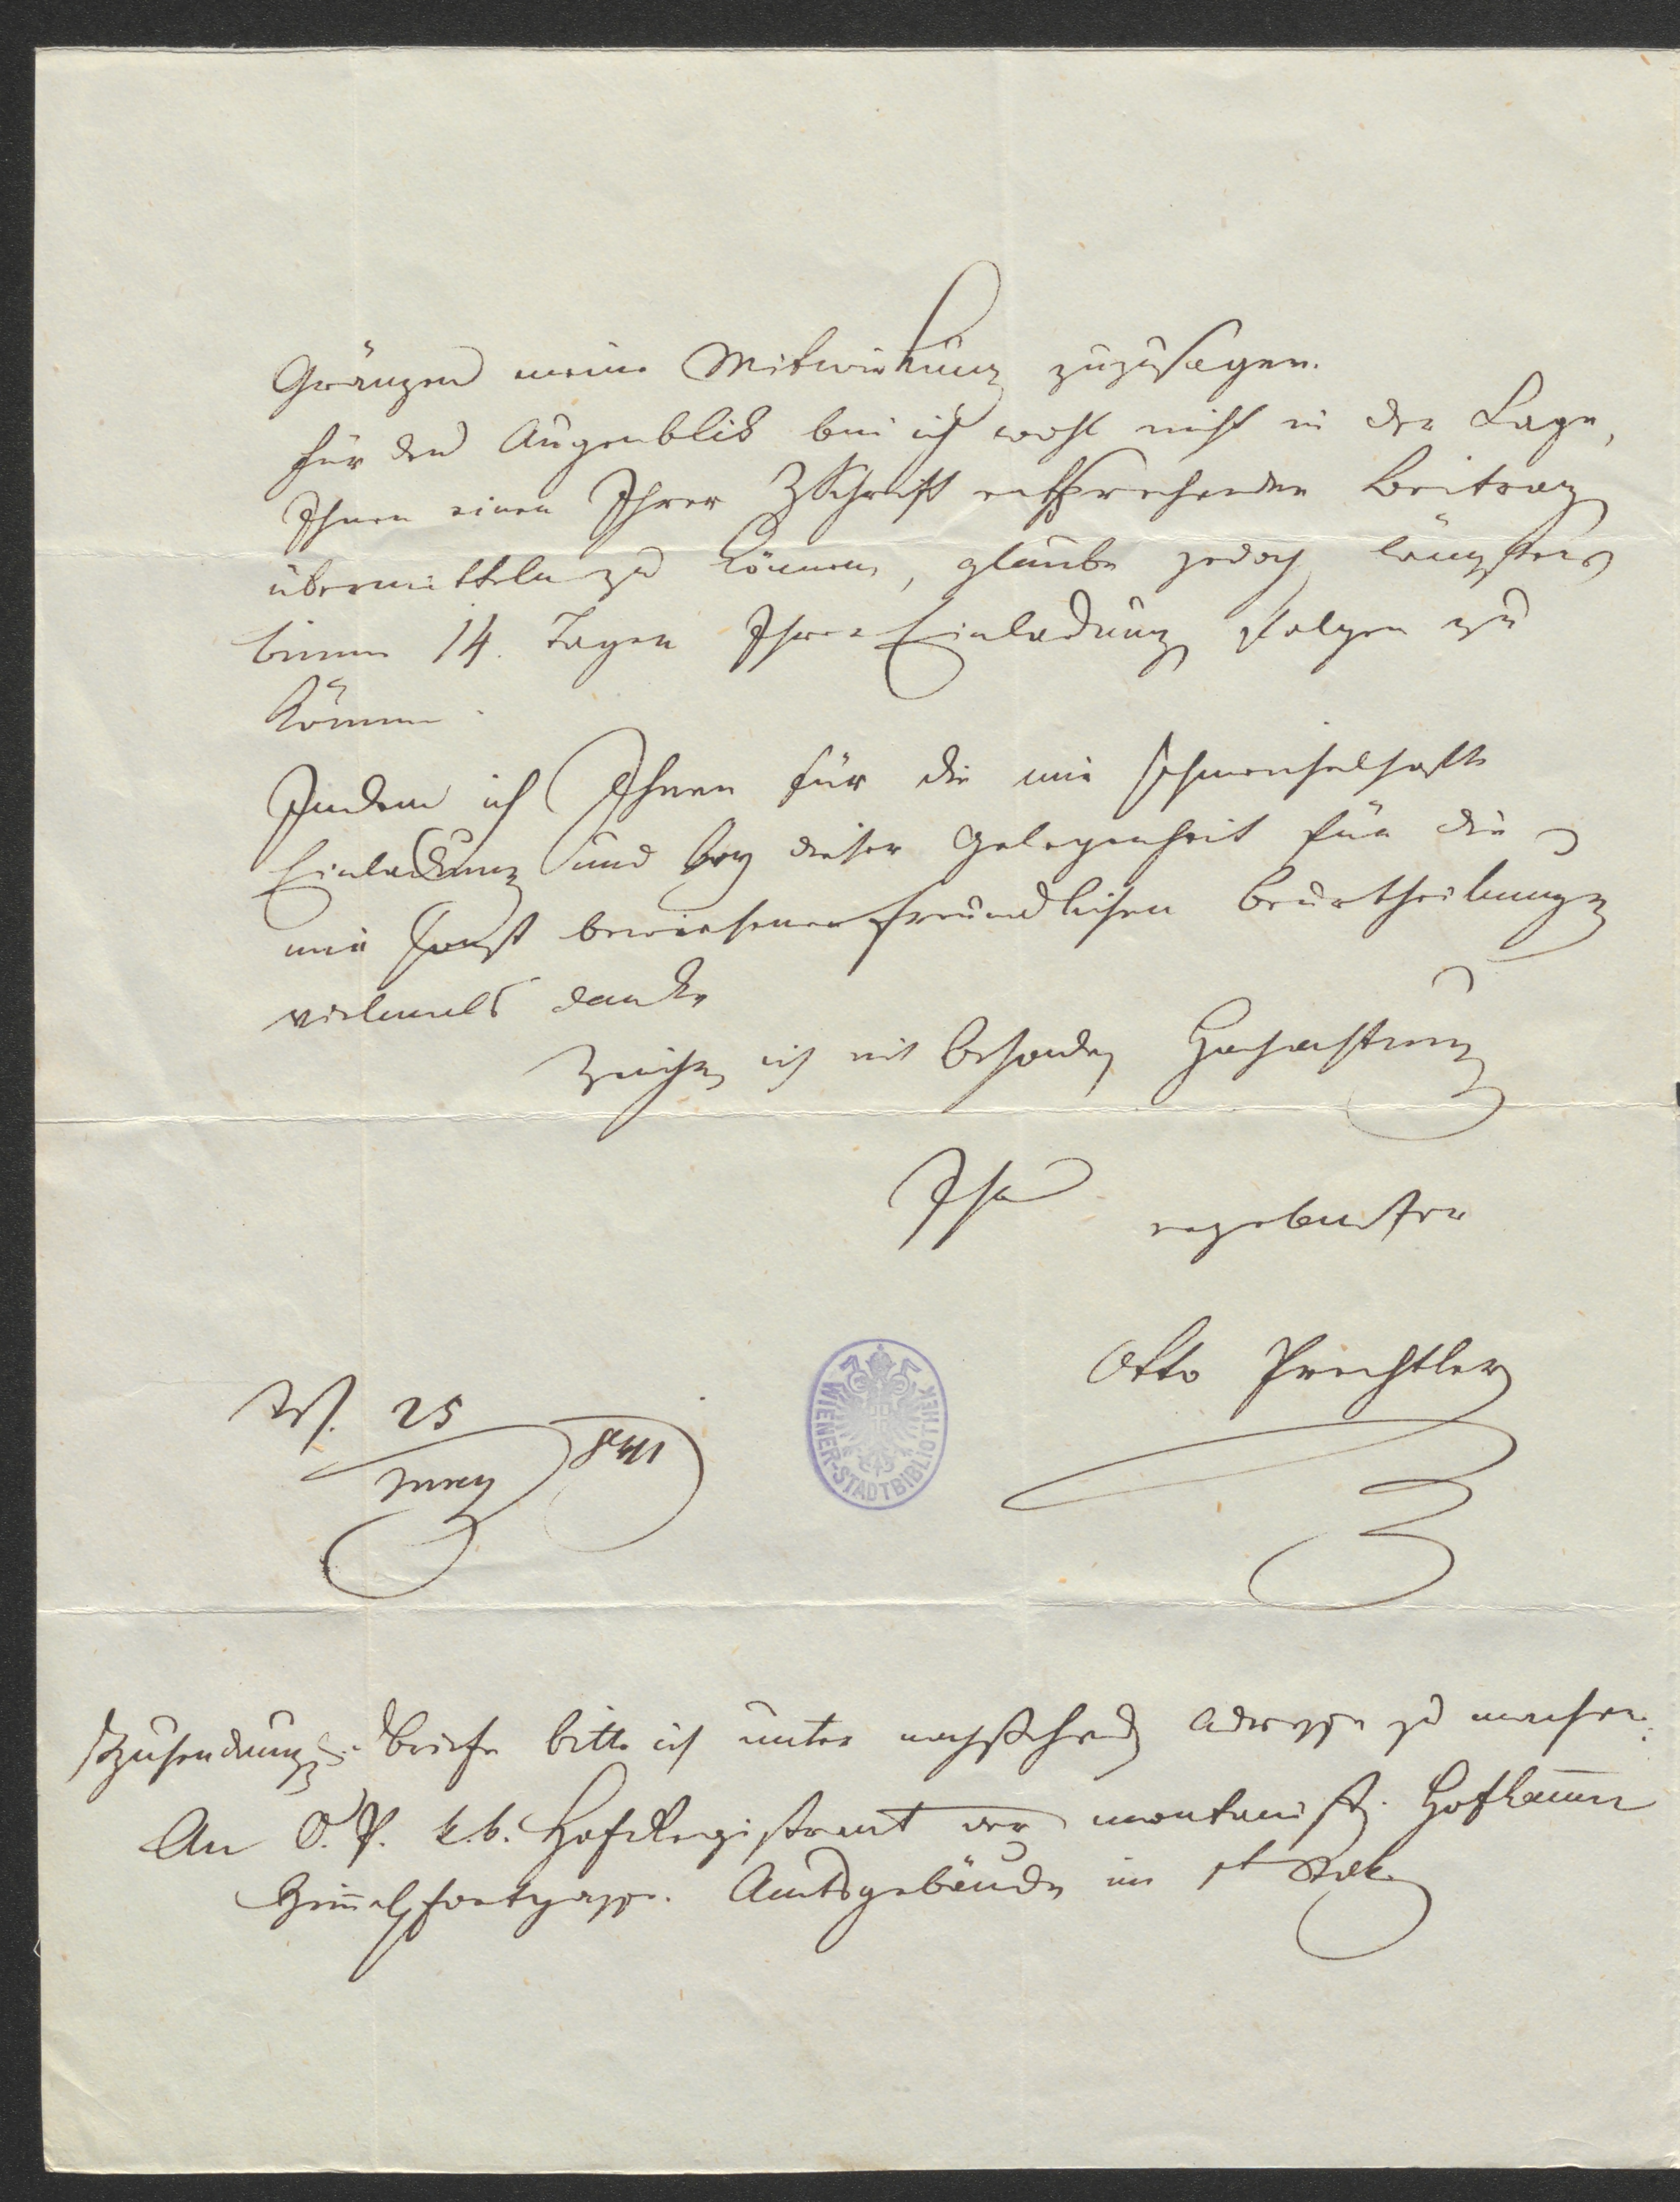 Gränzen meine Mitwirkung zuzusagen.
Für den Augenblik bin ich wohl nicht in der Lage,
Ihnen einen Ihrer ZSchrift entsprechenden Beitrag
übermitteln zu können, glaube jedoch längstens
binnen 14. Tagen Ihrer Einladung folgen zu
können.
Indem ich Ihnen für die mir schmeichelhafte
Einladung und bey dieser Gelegenheit für die
mir sonst bewiesenen freundlichen Beurtheilungen
vielmals danke
zeichne ich mit besonderer Hochachtung
Ihr
ergebenster
Otto Prechtler
W. 25
März 841
WIENER-STADTBIBLIOTHEK
Zusendungen Briefe bitte ich unter nachstehender Adresse zu machen:
An O. P. k.k. HofRegistrant der montanist. Hofkam̄er
Him̄elpfortgasse. Amtsgebäude im 1t Stok.